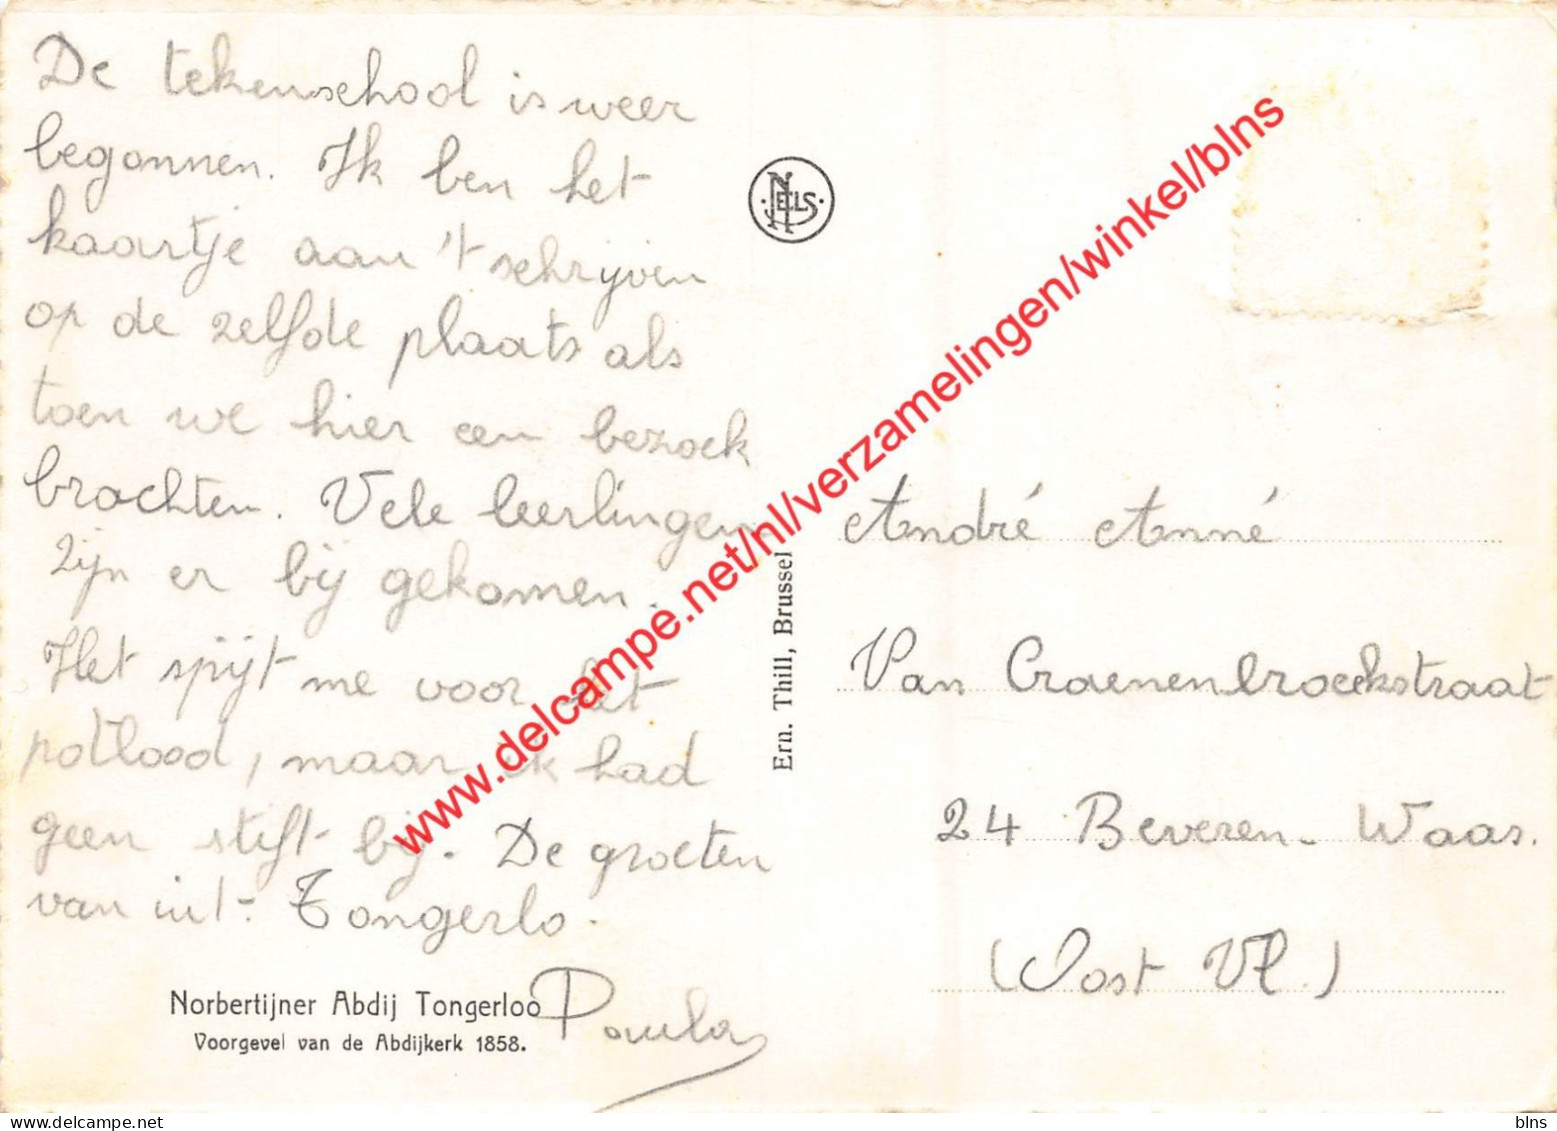 De tekenschool is weer
begonnen. Ik ben het
kaartje aan 't schrijven
op de zelfde plaats als
toen we hier een bezoek
brachten. Vele leerlingen
zijn er bij gekomen.
Het spijt me voor het
potlood, maar ik had
geen stift bij. De groeten
van uit Tongerlo.
Paula
Norbertijner Abdij Tongerloo
Voorgevel van de Abdijkerk 1858.
NELS
Ern. Thill, Brussel
André Anné
Van Craenenbroeckstraat
24 Beveren-Waas.
(Oost Vl.)
www.delcampe.net/nl/verzamelingen/winkel/blns
delcampe.net
blns